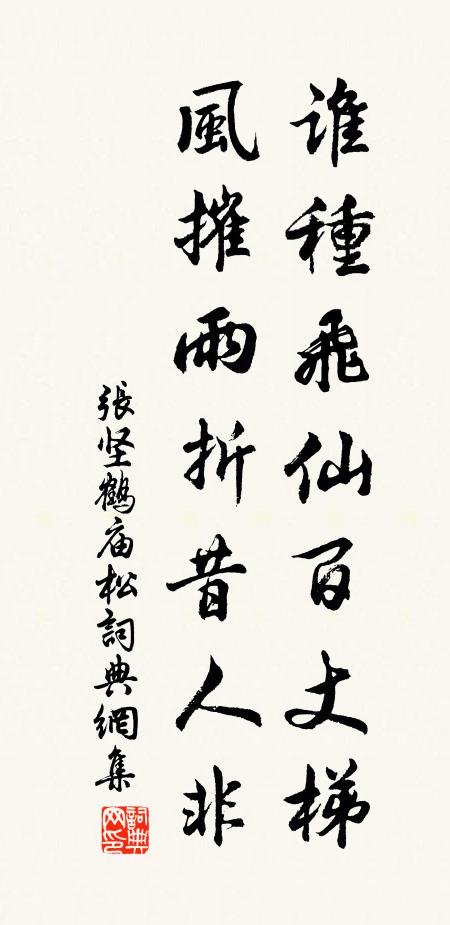 誰種飛仙百丈梯
風摧雨折昔人非
張坚鹤庙松詞典網集
詞典網印